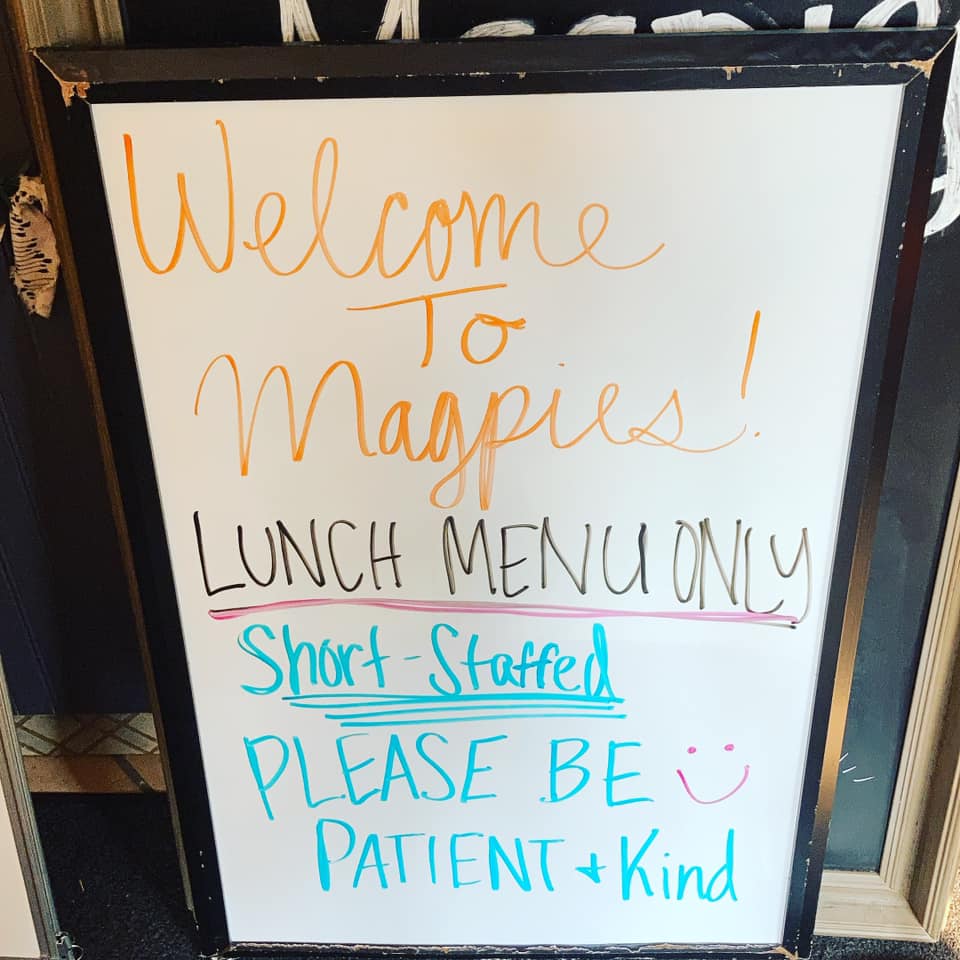 Welcome
To
Magpies!
LUNCH MENU ONLY
Short-Staffed
PLEASE BE
PATIENT + Kind